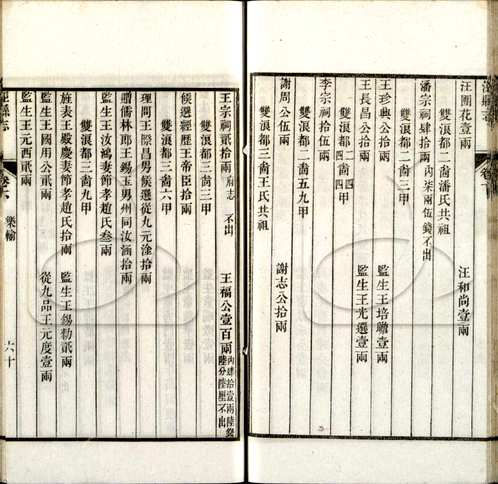 汪開花壹兩 汪和尚壹兩
雙浪都二啚潘氏共祖
潘宗祠肆拾兩 內柒兩伍錢不出
雙浪都二啚三甲
王珍典公拾兩 監生王培聽壹兩
王長昌公拾兩 監生王光選壹兩
雙浪都二啚四四甲
李宗祠拾伍兩
雙浪都二啚五九甲
謝周公伍兩 謝志公拾兩
雙浪都三啚王氏共祖
王宗祠貳拾兩 府志不出 王福公壹百兩 內肆拾壹兩陸錢陸分陸厘不出
雙浪都三啚三甲
候選經歷王帝臣拾兩
雙浪都三啚六甲
理問王際昌男候選從九元淦拾兩
贈儒林郎王錫玉男州同汝涵拾兩
監生王汝鴻妻節孝趙氏叁兩
雙浪都三啚九甲
旌表王嚴慶妻節孝趙氏拾兩 監生王錫勒貳兩
監生王國用公貳兩 從九品王元度壹兩
監生王元西貳兩
縣志
卷六
樂輸
六十